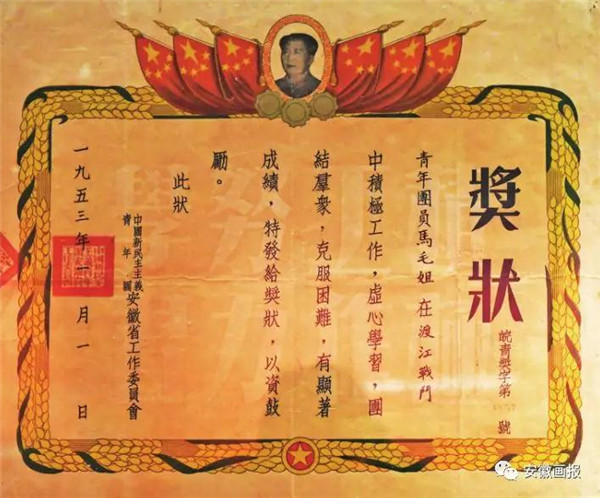 獎狀
皖青獎字第 號
青年團員馬毛姐在渡江戰鬥
中積極工作，虛心學習，團
結羣衆，克服困難，有顯著
成績，特發給獎狀，以資鼓
勵。
此狀
中國新民主主義青年團安徽省工作委員會
一九五三年一月一日
安徽画报